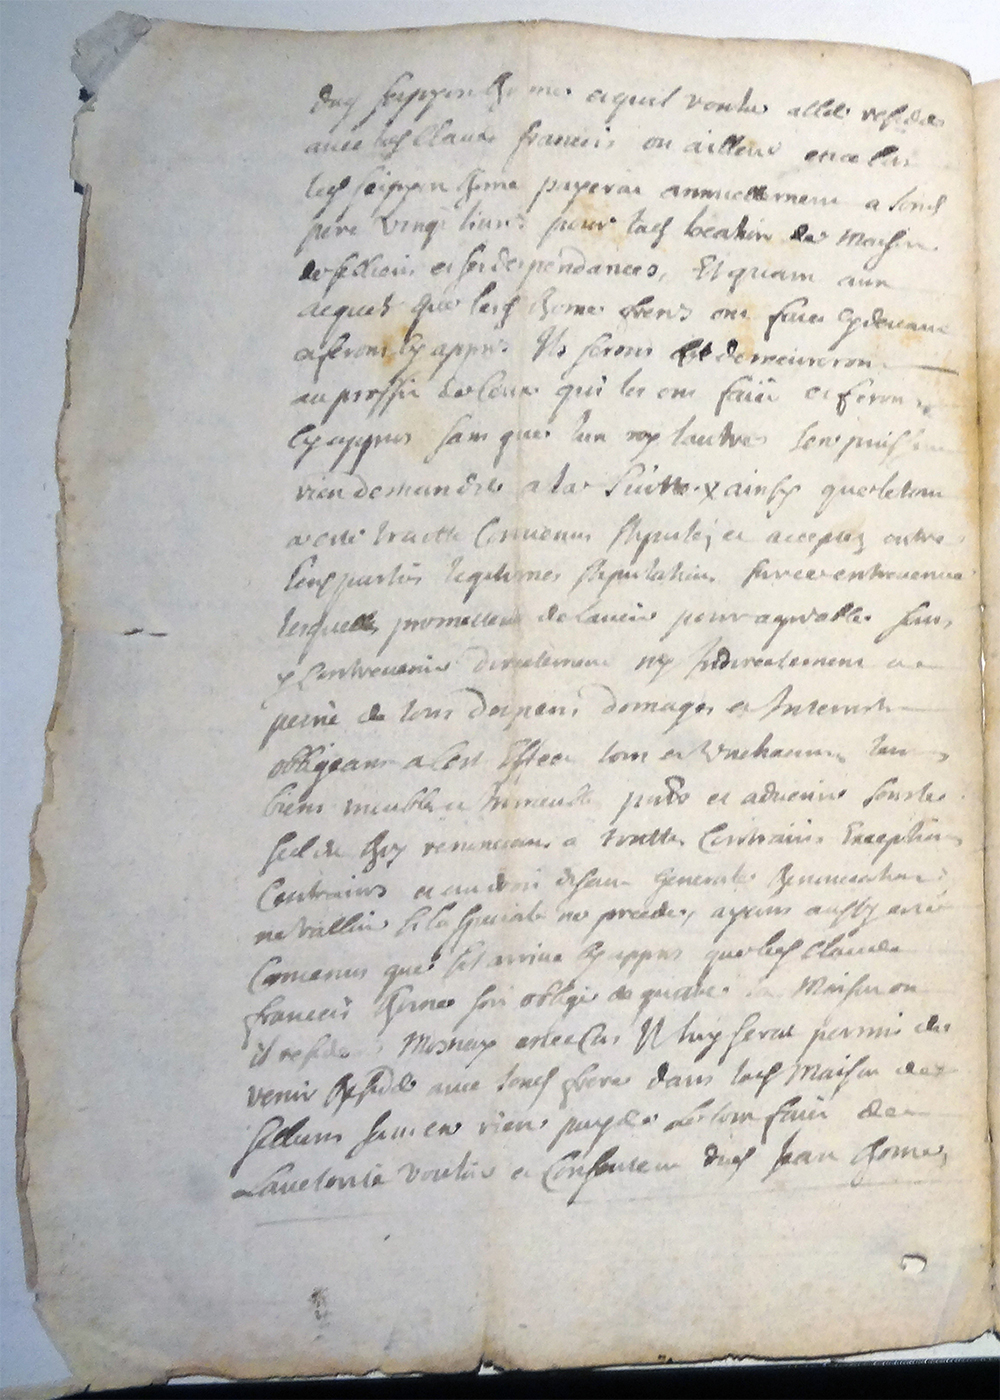 dud seigneur Gome et quil voulut aller resider
avec led Claude francois ou ailleur en ce cas
led Gome payerat annuellement a sond
pere vingt livres pour lad location de Maison
de sellieur et ses despendances, Et quant aux
acquets que lesd Gome freres ont faict cy devant
et feront cy appres Ils seront et demeureront
au proffit de Ceux qui les ont faict et feront
Cy appres sans que lun ny lautre puissent
rien demander a la Suitte ainsy que le tout
a esté traitté Convenus stipulés et acceptez entre
lesd parties legitimes stipulation sur ce entrevenue
lesquelles promettent de lavoir pour agreable sans
y Contrevenir directement ny Indirectement a
peine de tous despens domages et Interests
obligeant a Cest Effect tous et Unchacuns leurs
biens meuble et Immeuble pnts et advenir sous le
seel du Roy renonceant a touttes Exceptions
Contraires et au droit disant generale Renonciation
ne valloir si la speciale ne precede, ayant aussy esté
Convenus que sil arrive cy appres que led Claude
francois Gome soit obligé de quitter la Maison ou
il reside Mosnay en ce Cas Il luy serat permis de
venir Resider avec sond frere dans lad Maison de
sellieur sans en rien payer Le tout faict de
Lautorité vouloir et Consentem dud Jean Gome